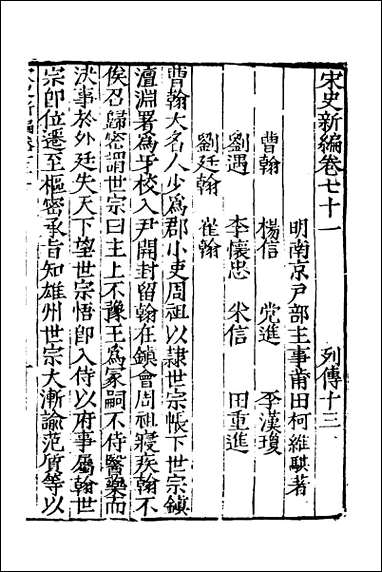 宋史新編卷七十一
列傳十三
明南京戸部主事莆田柯維騏著
曹翰 楊信 党進 李漢瓊
劉遇 李懷忠 米信 田重進
劉廷翰 崔翰
曹翰大名人少爲郡小吏周祖以隷世宗帳下世宗鎮
澶淵署爲牙校入尹開封留翰在鎮會周祖寢疾翰不
俟召歸密謂世宗曰主上不豫王爲冢嗣不侍醫藥而
決事於外廷失天下望世宗悟即入侍以府事屬翰世
宗即位遷至樞密承旨知雄州世宗大漸諭范質等以